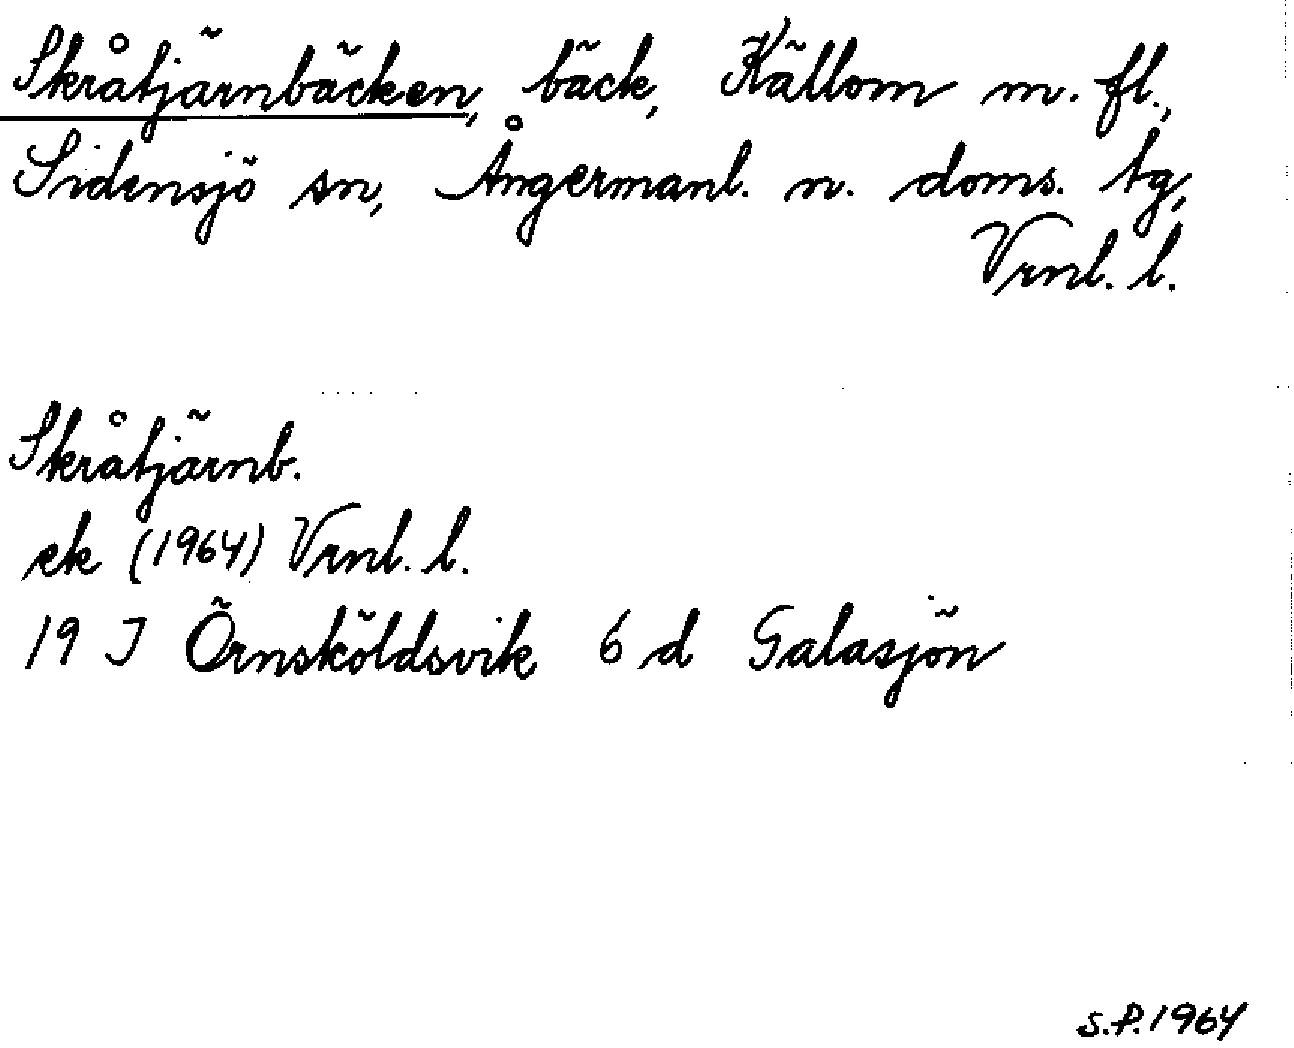 Skråtjärnbäcken, bäck, Källom m. fl.,
Sidensjö sn, Ångermanl. n. doms. tg,
Vrnl. l.
Skråtjärnb.
ek (1964) Vrnl. l.
19 J Örnsköldsvik 6 d Galasjön
S.P. 1964